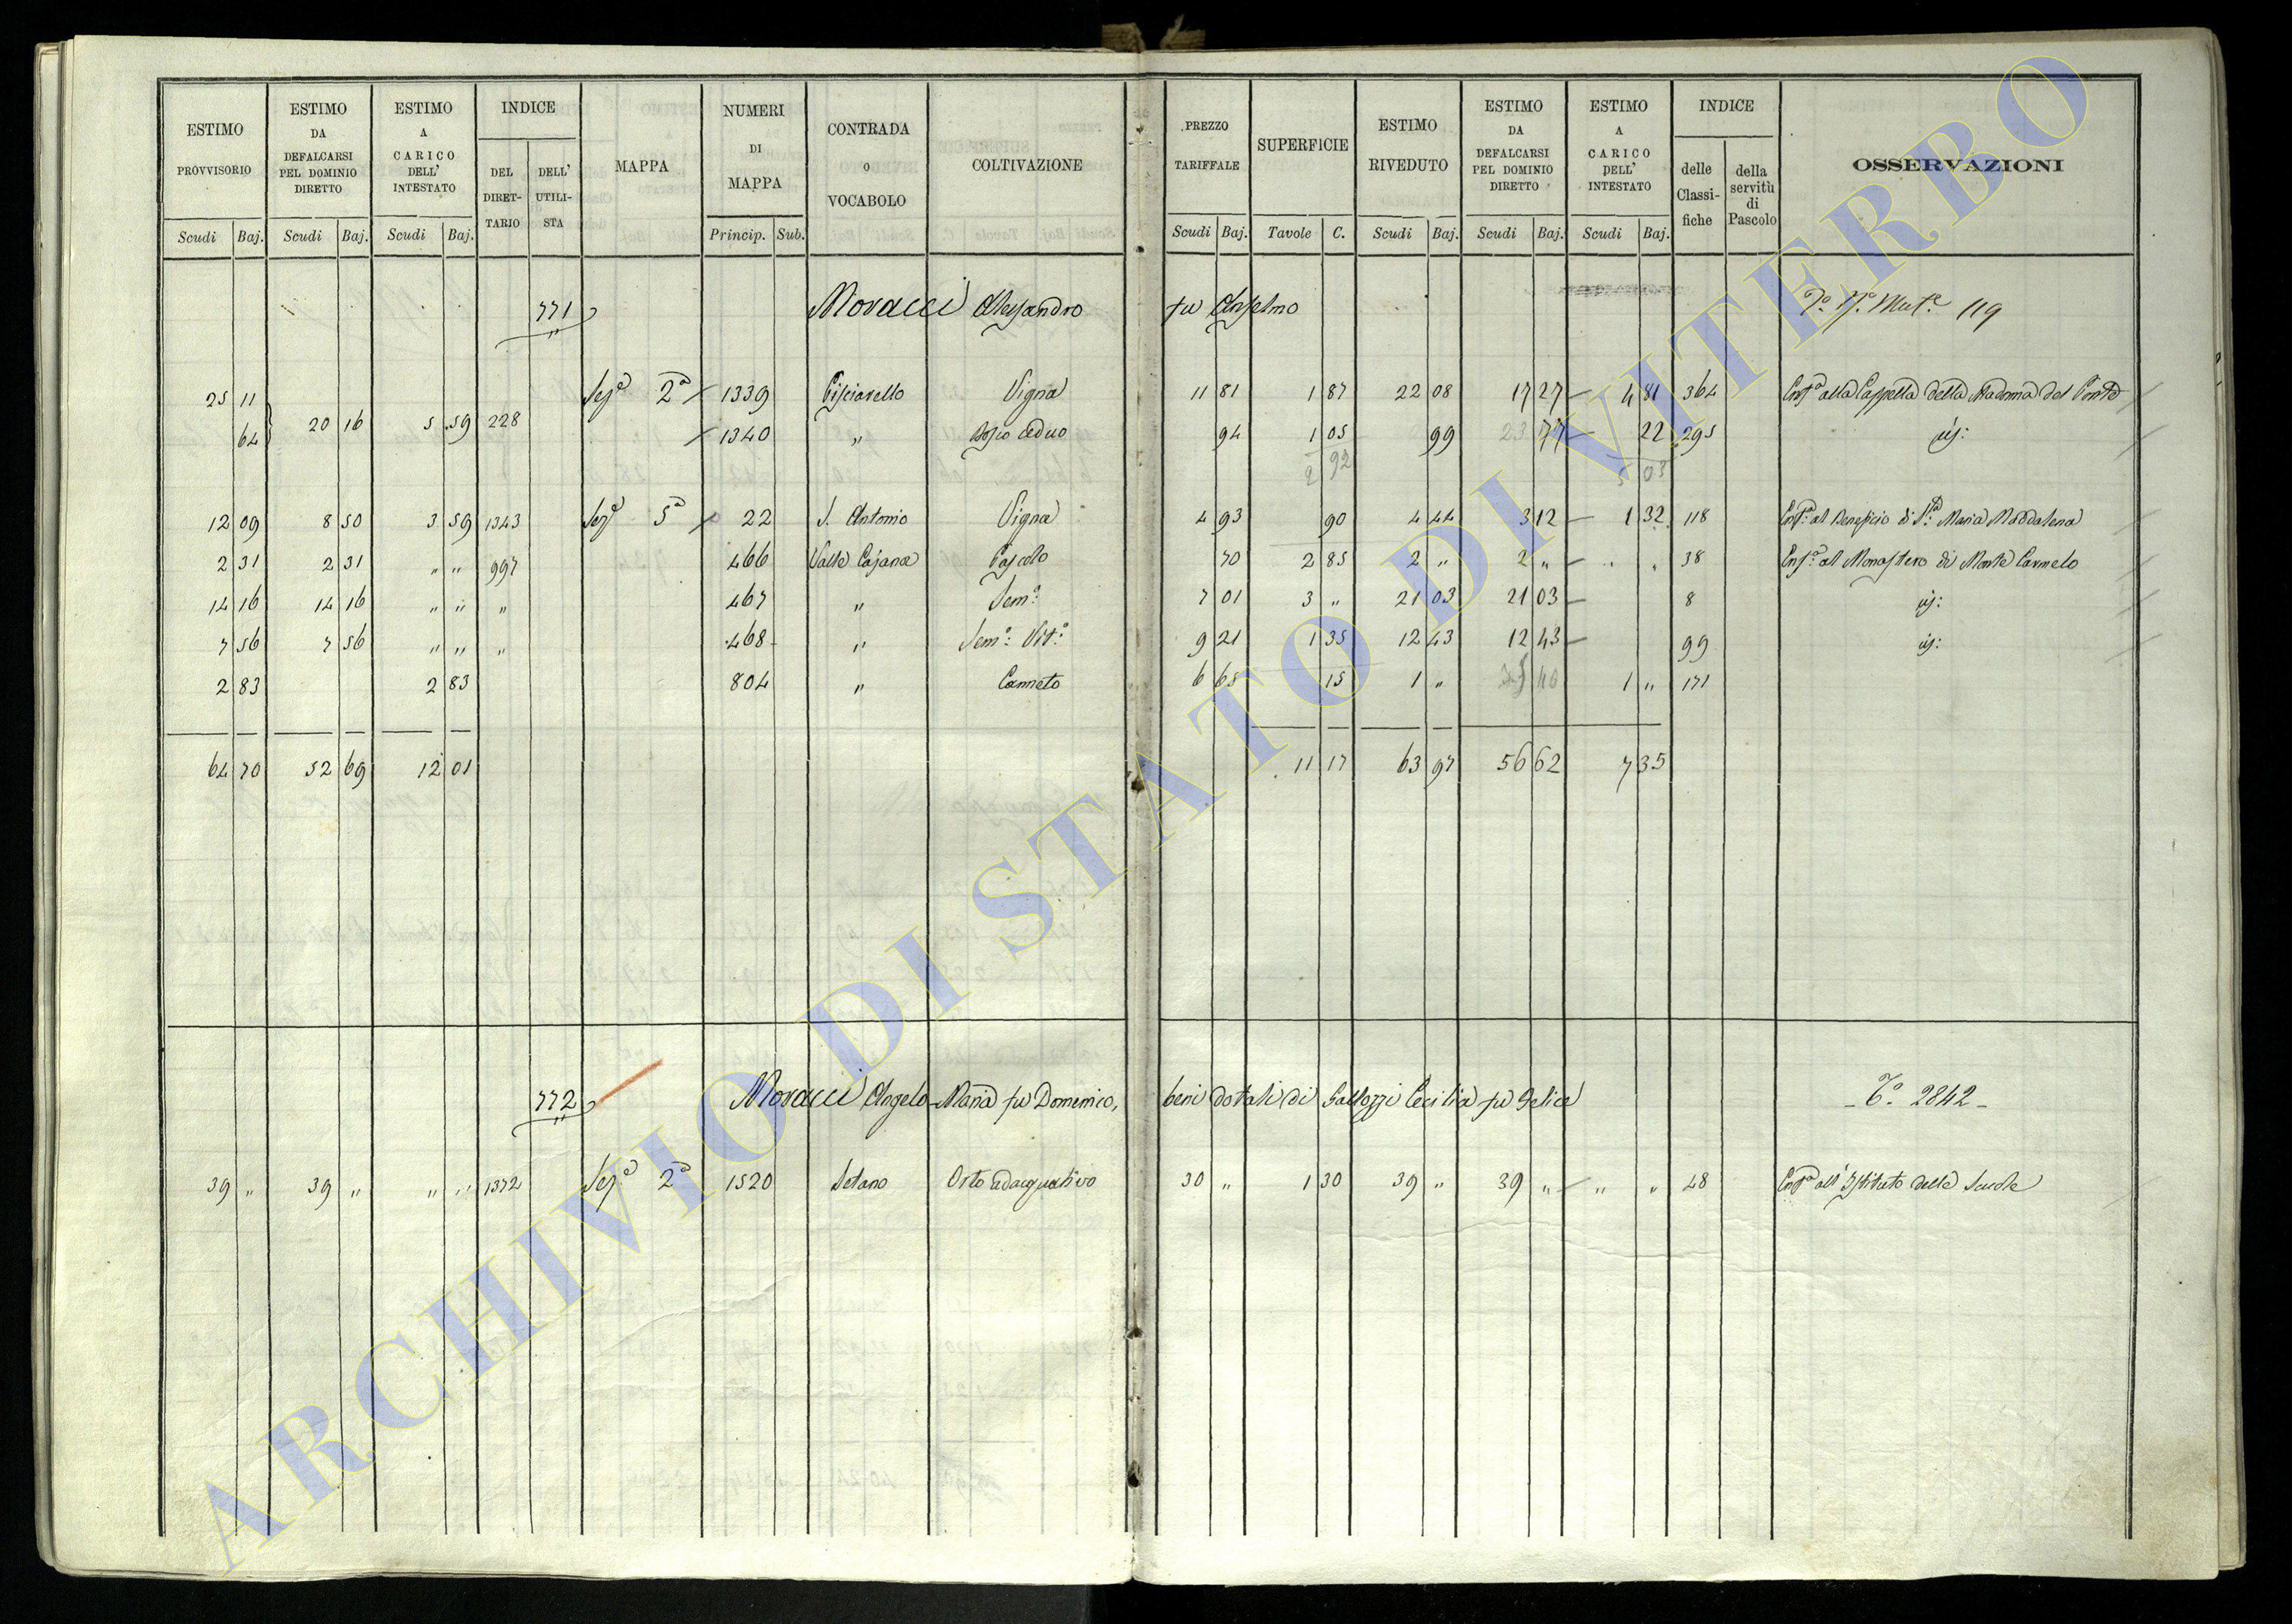 ESTIMO PROVVISORIO Scudi Baj. ESTIMO DA DEFALCARSI PEL DOMINIO DIRETTO Scudi Baj. ESTIMO A CARICO DELL' INTESTATO Scudi Baj. INDICE DEL DIRETTARIO DELL' UTILISTA MAPPA NUMERI DI MAPPA Princip. Sub. CONTRADA O VOCABOLO COLTIVAZIONE PREZZO TARIFFALE Scudi Baj. SUPERFICIE Tavole C. ESTIMO RIVEDUTO Scudi Baj. ESTIMO DA DEFALCARSI PEL DOMINIO DIRETTO Scudi Baj. ESTIMO A CARICO DELL' INTESTATO Scudi Baj. INDICE delle Classifiche della servitù di Pascolo OSSERVAZIONI
771 Moracci Alessandro fu Anselmo 119
25 11 Sezᵉ 2ᵃ 1339 Pisciarello Vigna 11 81 1 87 22 08 17 27 4 81 364 Enfᵃ alla Cappella della Madonna del Ponte
64 20 16 5 59 228 1340 " Bosco ceduo 94 1 05 99 77 22 295 id:
2 92 5 03
12 09 8 50 3 59 1343 Sezᵉ 5ᵃ 22 S. Antonio Vigna 4 93 90 4 44 3 12 1 32 118 Enfᵃ: al Beneficio di Sᵗᵃ: Maria Maddalena
2 31 2 31 " " 997 466 Valle Cajana Pascolo 70 2 85 2 " 2 " " " 38 Enfᵃ al Monastero di Monte Carmelo
14 16 14 16 " " " 467 " Semᵒ: 7 01 3 " 21 03 21 03 8 id:
7 56 7 56 " " " 468 " Semᵒ: Vitᵒ: 9 21 1 35 12 43 12 43 99 id:
2 83 2 83 804 " Canneto 6 65 15 1 " 1 " 171
64 70 52 69 12 01 11 17 63 97 56 62 7 35
772 Moracci Angelo Maria fu Domenico, beni dotali di Gallozzi Cecilia fu Felice 2842
39 " 39 " " " 1372 Sezᵉ 2ᵃ 1520 Setano Orto adacquativo 30 " 1 30 39 " 39 " " " 48 Enfᵃ all'Istituto delle Scuole
ARCHIVIO DI STATO DI VITERBO